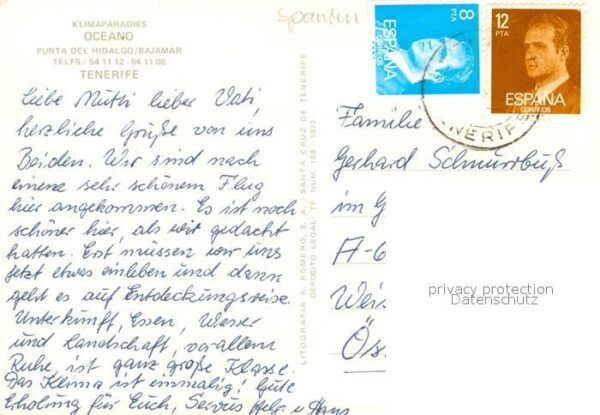 KLIMAPARADIES
OCEANO
PUNTA DEL HIDALGO/BAJAMAR
TELFS.: 54 11 12 - 54 11 08
TENERIFE
Liebe Mutti lieber Vati,
herzliche Grüße von uns
Beiden. Wir sind nach
einem sehr schönem Flug
hier angekommen. Es ist noch
schöner hier, als wir gedacht
hatten. Erst müssen wir uns
jetzt etwas einleben und dann
geht es auf Entdeckungsreise.
Unterkunft, Essen, Wasser
und Landschaft, vor allem
Ruhe, ist ganz große Klasse.
Das Klima ist einmalig! Gute
Erholung für Euch, Servus u Hans
LITOGRAFIA A. ROMERO, S. A. - SANTA CRUZ DE TENERIFE
DEPOSITO LEGAL: TF. NUM 199 1972
Spanien
8
PTA
ESPAÑA
CORREOS
12
PTA
ESPAÑA
CORREOS
NERIF
Familie
Gerhard Schnurrbuß
im G
A-6
Weis
Ös
privacy protection
Datenschutz